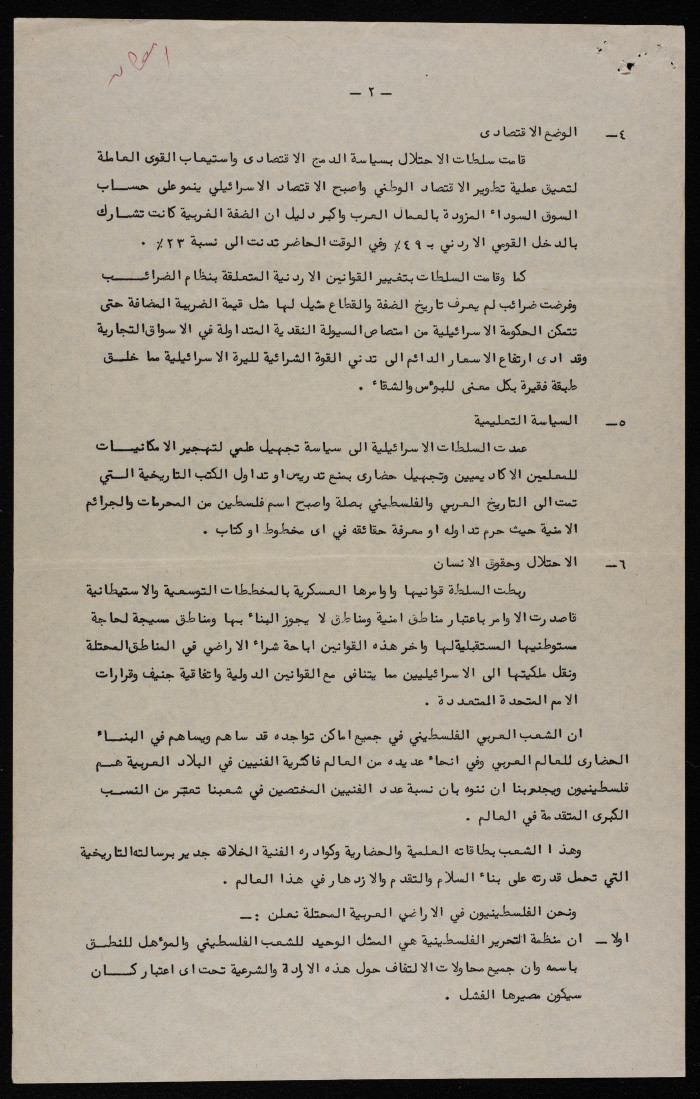 — ٢ —
٤— الوضع الاقتصادى
قامت سلطات الاحتلال بسياسة الدمج الاقتصادى واستيعاب القوى العاملة
لتعيق عملية تطوير الاقتصاد الوطني واصبح الاقتصاد الاسرائيلي ينمو على حســاب
السوق السوداء المزودة بالعمال العرب واكبر دليل ان الضفة الغربية كانت تشــارك
بالدخل القومي الاردني بـ ٤٩٪ وفي الوقت الحاضر تدنت الى نسبة ٢٣٪ .
كما وقامت السلطات بتغيير القوانين الاردنية المتعلقة بنظام الضرائــــب
وفرضت ضرائب لم يعرف تاريخ الضفة والقطاع مثيل لها مثل قيمة الضريبة المضافة حتى
تتمكن الحكومة الاسرائيلية من امتصاص السيولة النقدية المتداولة في الاسواق التجارية
وقد ادى ارتفاع الاسعار الدائم الى تدني القوة الشرائية لليرة الاسرائيلية مما خلــق
طبقة فقيرة بكل معنى للبوءس والشقاء .
٥— السياسة التعليمية
عمدت السلطات الاسرائيلية الى سياسة تجهيل علمي لتهجير الامكانيــات
للمعلمين الاكاديميين وتجهيل حضارى بمنع تدريس او تداول الكتب التاريخية التــي
تمت الى التاريخ العربي والفلسطيني بصلة واصبح اسم فلسطين من المحرمات والجرائم
الامنية حيث حرم تداوله او معرفة حقائقه في اى مخطوط او كتاب .
٦— الاحتلال وحقوق الانسان
ربطت السلطة قوانيها واوامرها العسكرية بالمخططات التوسعية والاستيطانية
فاصدرت الاوامر باعتبار مناطق امنية ومناطق لا يجوز البناء بها ومناطق مسيجة لحاجة
مستوطنيها المستقبلية لها واخر هذه القوانين اباحة شراء الاراضي في المناطق المحتلة
ونقل ملكيتها الى الاسرائيليين مما يتنافى مع القوانين الدولية واتفاقية جنيف وقرارات
الامم المتحدة المتعددة .
ان الشعب العربي الفلسطيني في جميع اماكن تواجده قد ساهم ويساهم في البنــاء
الحضارى للعالم العربي وفي انحاء عديده من العالم فاكثرية الفنيين في البلاد العربية هــم
فلسطينيون ويجدر بنا ان ننوه بان نسبة عدد الفنيين المختصين في شعبنا تعتبر من النســب
الكبرى المتقدمة في العالم .
وهذا الشعب بطاقاته العلمية والحضارية وكوادره الفنية الخلاقه جدير برسالته التاريخية
التي تحمل قدرته على بناء السلام والتقدم والازدهار في هذا العالم .
ونحن الفلسطينيون في الاراضي العربية المحتلة نعلن : —
اولا — ان منظمة التحرير الفلسطينية هي الممثل الوحيد للشعب الفلسطيني والموءهل للنطــق
باسمه وان جميع محاولات الالتفاف حول هذه الارادة والشرعية تحت اى اعتبار كــــان
سيكون مصيرها الفشل .